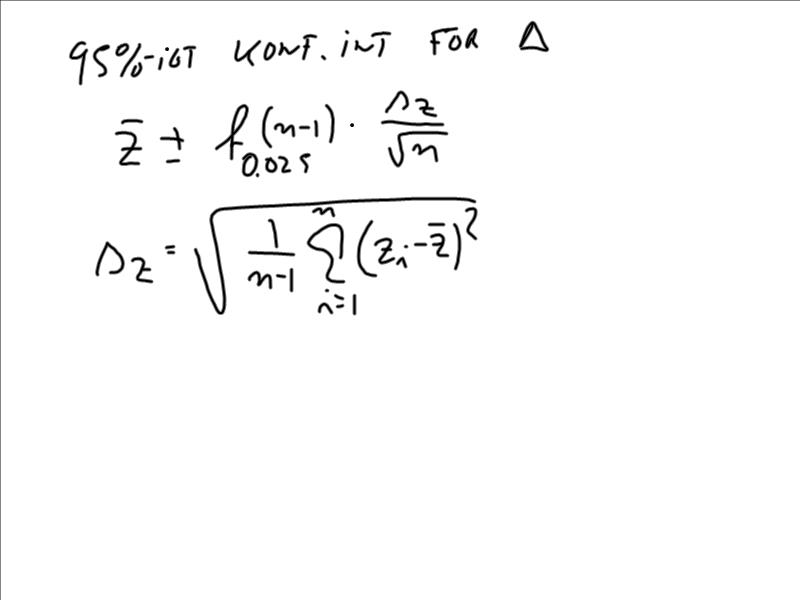 95%-IGT KONF. INT FOR Δ
z̄ ± t_{0.025}(n-1) · s_z/√n
s_z = √(1/(n-1) ∑_{i=1}^{n} (z_i - z̄)²)